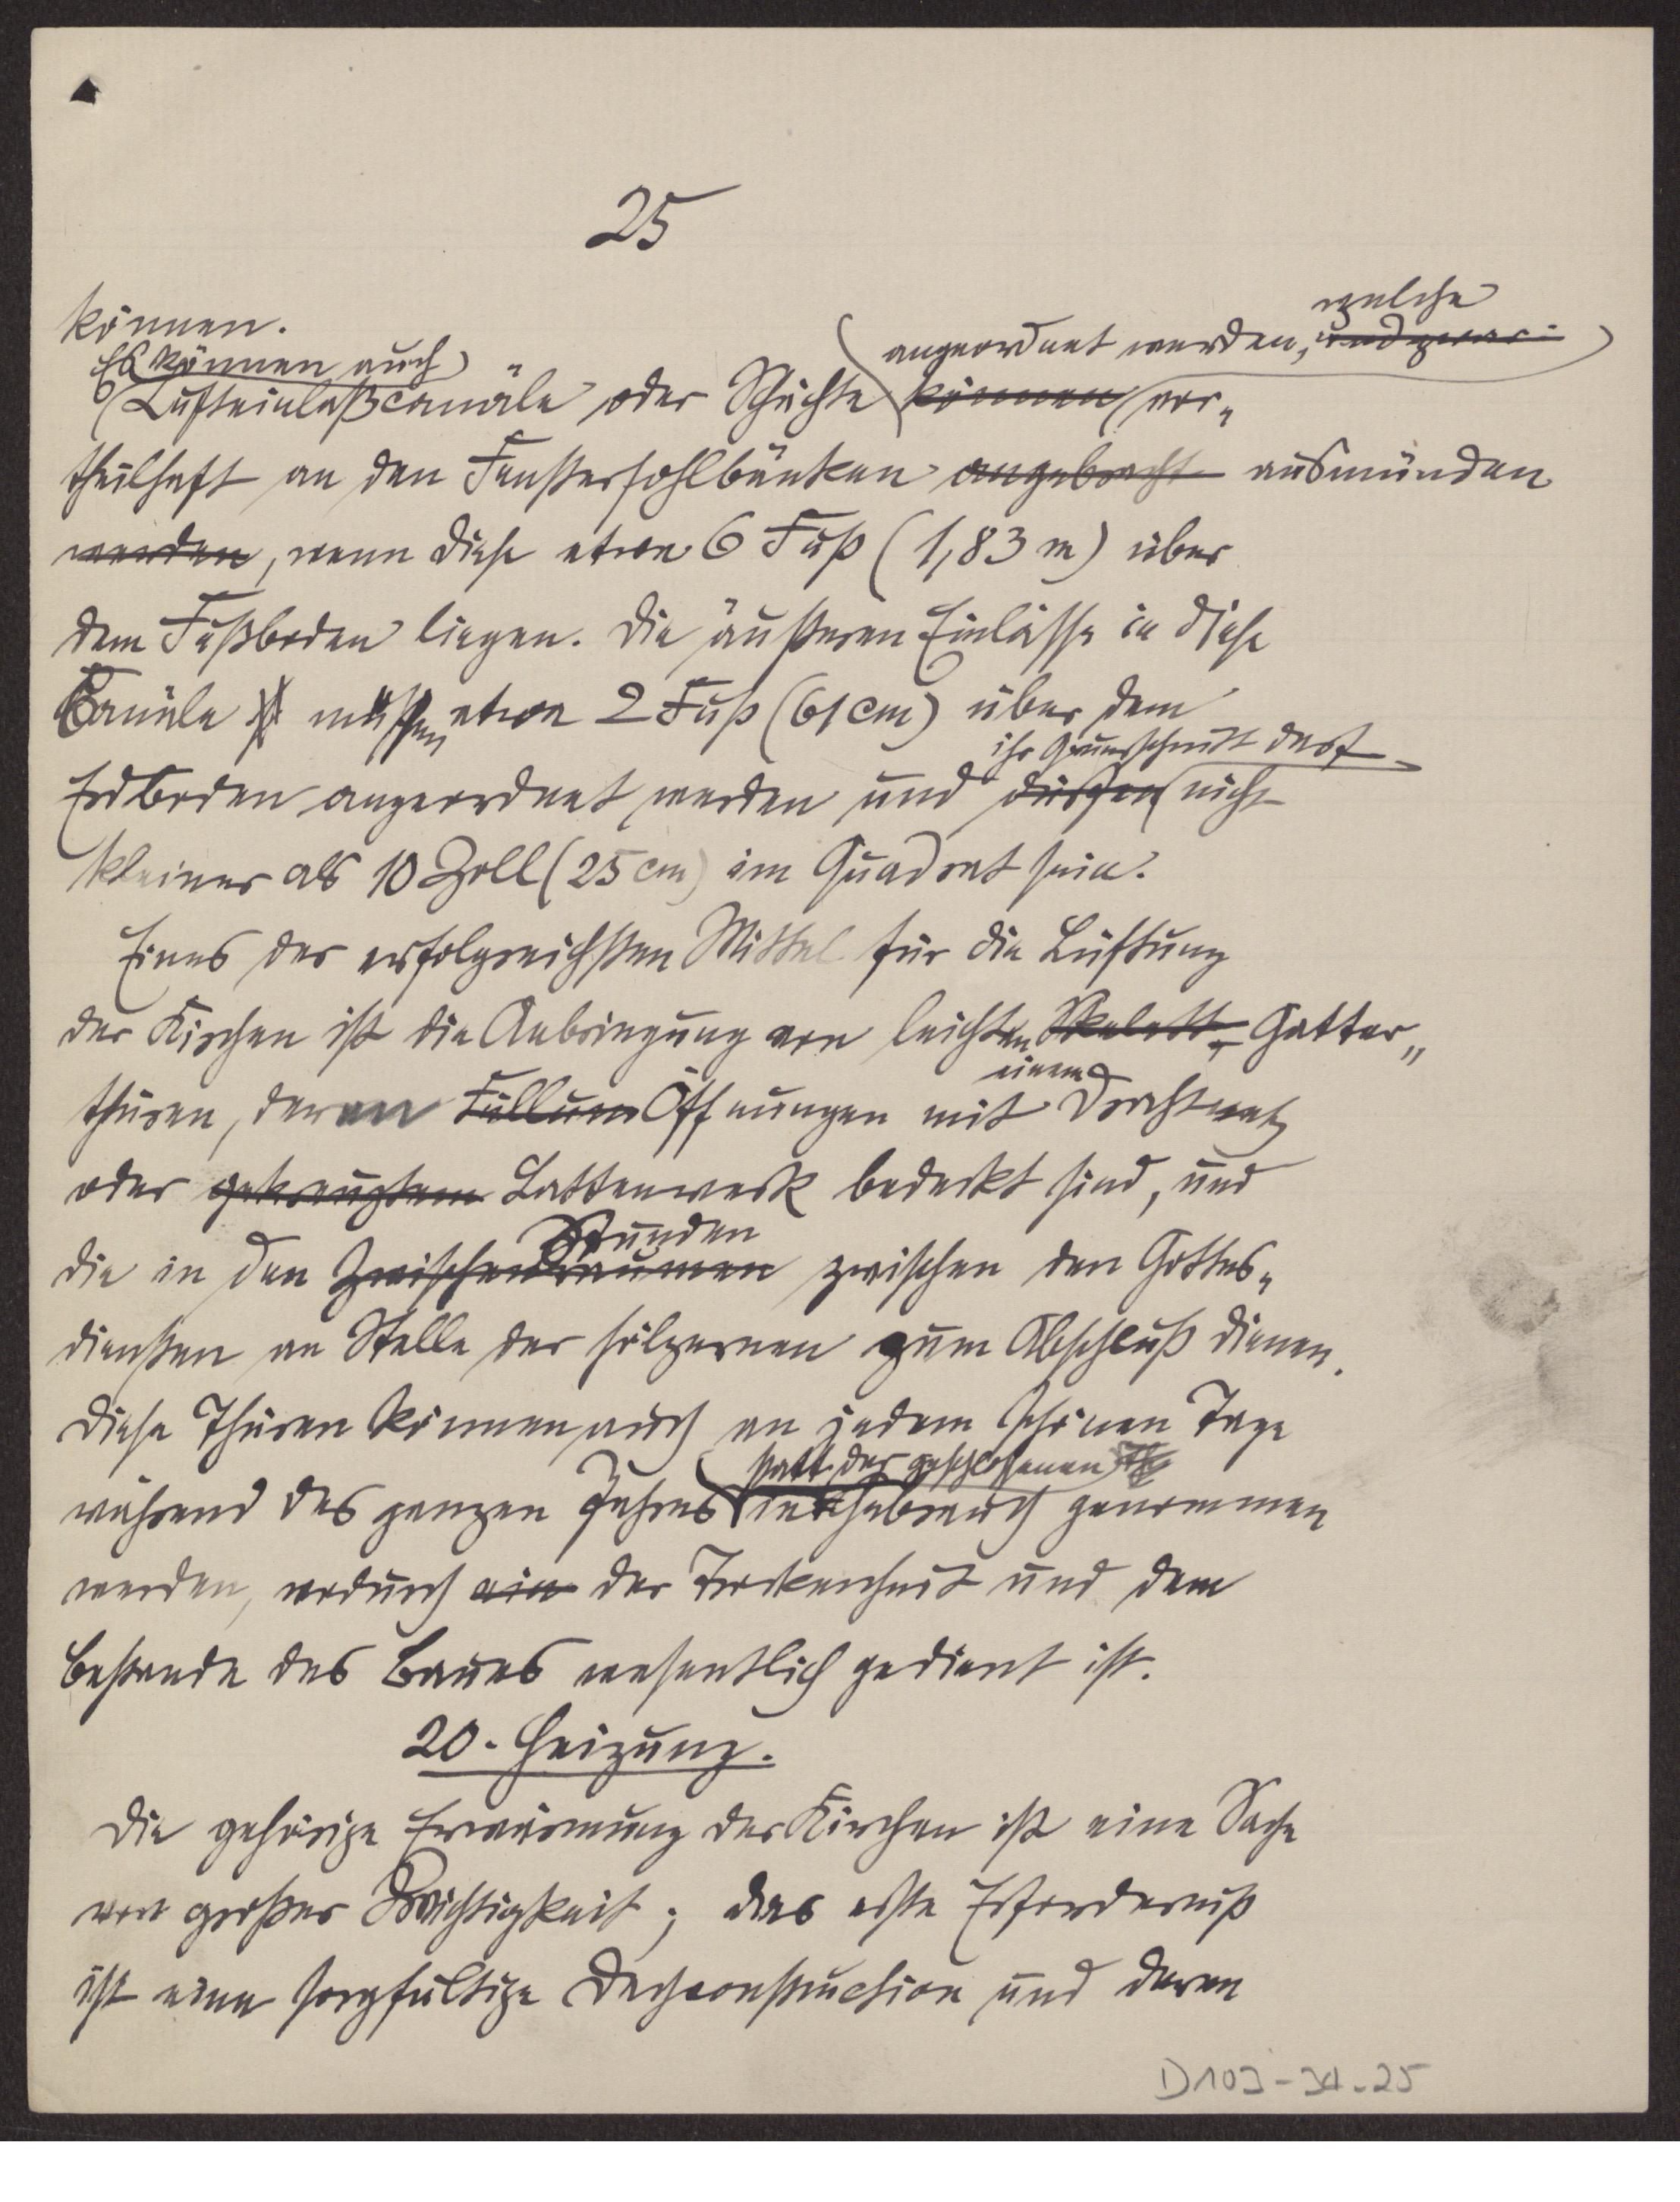 25
können.
Es können auch
angeordnet werden, welche
und zwar
Lufteinlaßcanäle oder Schächte können vor-
theilhaft an den Fenstersohlbänken angebracht ausmünden
werden, wenn diese etwa 6 Fuß (1,83 m) über
dem Fußboden liegen. Die äußeren Einlässe in diese
Canäle müssen etwa 2 Fuß (61 cm) über dem
ihr Querschnitt darf
Erdboden angeordnet werden und dürfen nicht
kleiner als 10 Zoll (25 cm) im Quadrat sein.
Eines der erfolgreichsten Mittel für die Lüftung
der Kirchen ist die Anbringung von leichten Skelett- Gatter-
einem
thüren, deren Füllun Öffnungen mit Drahtnetz
oder gekreuztem Lattenwerk bedeckt sind, und
Stunden
die in den Zwischenräumen zwischen den Gottes-
diensten an Stelle der hölzernen zum Abschluß dienen.
Diese Thüren können auch an jedem schönen Tage
statt der geschlossenen
während des ganzen Jahres in Gebrauch genommen
werden, wodurch ein der Trockenheit und dem
Bestande des Baues wesentlich gedient ist.
20. Heizung.
Die gehörige Erwärmung der Kirchen ist eine Sache
von großer Wichtigkeit; das erste Erforderniß
ist eine sorgfältige Dachconstruction und deren
D103-34-25